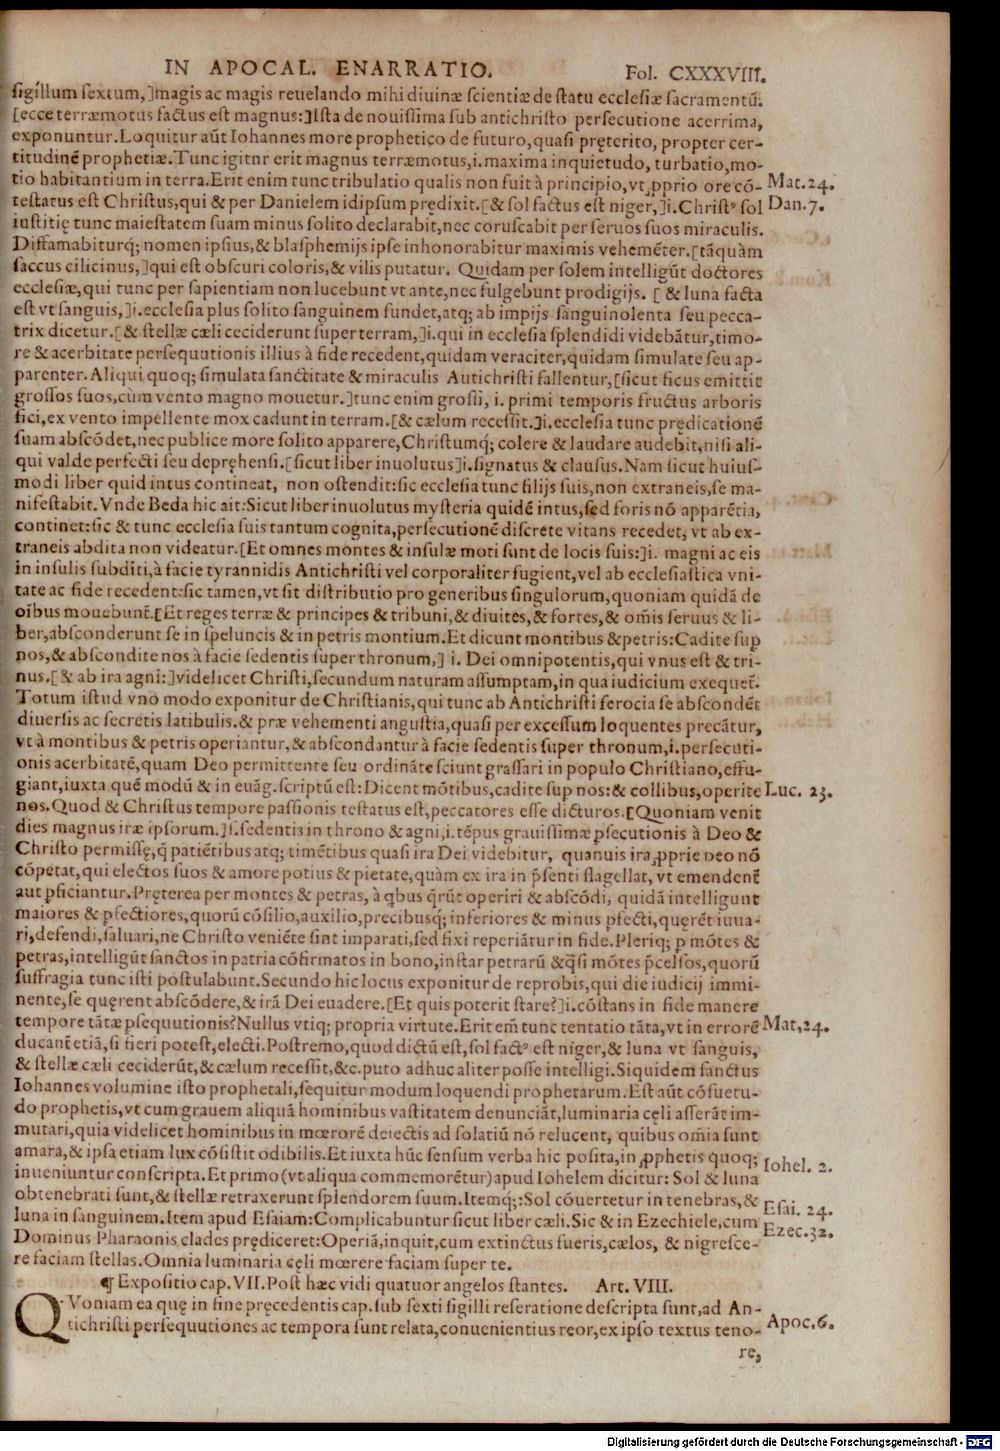 IN APOCAL. ENARRATIO. Fol. CXXXVIII.
sigillum sextum,]magis ac magis reuelando mihi diuinæ scientiæ de statu ecclesiæ sacramentũ.
[ecce terræmotus factus est magnus:]Ista de nouissima sub antichristo persecutione acerrima,
exponuntur.Loquitur aũt Iohannes more prophetico de futuro,quasi pręterito, propter cer-
titudinẽ prophetiæ.Tunc igitnr erit magnus terræmotus,i.maxima inquietudo, turbatio,mo-
tio habitantium in terra.Erit enim tunc tribulatio qualis non fuit à principio,vt ꝓprio ore cõ- Mat.24.
testatus est Christus,qui & per Danielem idipsum prędixit.[& sol factus est niger,]i.Christꝰ sol Dan.7.
iustitię tunc maiestatem suam minus solito declarabit,nec coruscabit per seruos suos miraculis.
Diffamabiturq́; nomen ipsius,& blasphemijs ipse inhonorabitur maximis vehemẽter.[tãquàm
saccus cilicinus,]qui est obscuri coloris,& vilis putatur. Quidam per solem intelligũt doctores
ecclesiæ,qui tunc per sapientiam non lucebunt vt ante,nec fulgebunt prodigijs. [ & luna facta
est vt sanguis,]i.ecclesia plus solito sanguinem fundet,atq; ab impijs sanguinolenta seu pecca-
trix dicetur.[& stellæ cæli ceciderunt super terram,]i.qui in ecclesia splendidi videbãtur,timo-
re & acerbitate persequutionis illius à fide recedent,quidam veraciter,quidam simulate seu ap-
parenter.Aliqui quoq; simulata sanctitate & miraculis Autichristi fallentur,[sicut ficus emittit
grossos suos,cùm vento magno mouetur.]tunc enim grossi, i. primi temporis fructus arboris
fici,ex vento impellente mox cadunt in terram.[& cælum recessit.]i.ecclesia tunc prędicationẽ
suam abscõdet,nec publice more solito apparere,Christumq́; colere & laudare audebit,nisi ali-
qui valde perfecti seu depręhensi.[sicut liber inuolutus]i.signatus & clausus.Nam sicut huius-
modi liber quid intus contineat, non ostendit:sic ecclesia tunc filijs suis,non extraneis,se ma-
nifestabit.Vnde Beda hic ait:Sicut liber inuolutus mysteria quidẽ intus,sed foris nõ apparẽtia,
continet:sic & tunc ecclesia suis tantum cognita,persecutionẽ discrete vitans recedet, vt ab ex-
traneis abdita non videatur.[Et omnes montes & insulæ moti sunt de locis suis:]i. magni ac eis
in insulis subditi,à facie tyrannidis Antichristi vel corporaliter fugient,vel ab ecclesiastica vni-
tate ac fide recedent:sic tamen,vt sit distributio pro generibus singulorum,quoniam quidã de
oĩbus mouebunt̃.[Et reges terræ & principes & tribuni,& diuites,& fortes,& om̃is seruus & li-
ber,absconderunt se in speluncis & in petris montium.Et dicunt montibus &petris:Cadite sup̱
nos,& abscondite nos à facie sedentis super thronum,] i. Dei omnipotentis,qui vnus est & tri-
nus.[& ab ira agni:]videlicet Christi,secundum naturam assumptam,in qua iudicium exequet̃.
Totum istud vno modo exponitur de Christianis,qui tunc ab Antichristi ferocia se abscondẽt
diuersis ac secretis latibulis.& præ vehementi angustia,quasi per excessum loquentes precãtur,
vt à montibus & petris operiantur,& abscondantur à facie sedentis super thronum,i.persecuti-
onis acerbitatẽ,quam Deo permittente seu ordinãte sciunt grassari in populo Christiano,effu-
giant,iuxta quẽ modũ & in euãg.scriptũ est:Dicent mõtibus,cadite sup nos:& collibus,operite Luc. 23.
nos.Quod & Christus tempore passionis testatus est,peccatores esse dicturos.[Quoniam venit
dies magnus iræ ipsorum.]s.sedentis in throno & agni,i.tẽpus grauissimæ ꝑsecutionis à Deo &
Christo permissę,q̃ patiẽtibus atq; timẽtibus quasi ira Dei videbitur, quanuis ira ꝓprie Deo nõ
cõpetat,qui electos suos & amore potius & pietate,quàm ex ira in p̃senti flagellat, vt emendent̃
aut ꝑficiantur.Pręterea per montes & petras, à qbus q̃rũt operiri & abscõdi, quidã intelligunt
maiores & ꝑfectiores,quorũ cõsilio,auxilio,precibusq́; inferiores & minus ꝑfecti,quęrẽt iuua-
ri,defendi,saluari,ne Christo veniẽte sint imparati,sed fixi reperiãtur in fide.Pleriq; ꝑ mõtes &
petras,intelligũt sanctos in patria cõfirmatos in bono,instar petrarũ &q̃si mõtes p̃celsos,quorũ
suffragia tunc isti postulabunt.Secundo hic locus exponitur de reprobis,qui die iudicij immi-
nente,se quęrent abscõdere,& irã Dei euadere.[Et quis poterit stare?]i.cõstans in fide manere
tempore tãtæ ꝑsequutionis?Nullus vtiq; propria virtute.Erit em̃ tunc tentatio tãta,vt in errorẽ Mat,24.
ducant̃ etiã,si fieri potest,electi.Postremo,quod dictũ est,sol factꝰ est niger,& luna vt sanguis,
& stellæ cæli ceciderũt,&cælum recessit,&c.puto adhuc aliter posse intelligi.Siquidem sanctus
Iohannes volumine isto prophetali,sequitur modum loquendi prophetarum.Est aũt cõsuetu-
do prophetis,vt cum grauem aliquã hominibus vastitatem denunciãt,luminaria cęli asserãt im-
mutari,quia videlicet hominibus in mœrorẽ deiectis ad solatiũ nõ relucent, quibus om̃ia sunt
amara,& ipsa etiam lux cõsistit odibilis.Et iuxta hũc sensum verba hic posita,in ꝓphetis quoq;
inueniuntur conscripta.Et primo(vt aliqua commemorẽtur)apud Iohelem dicitur: Sol & luna Iohel. 2.
obtenebrati sunt,& stellæ retraxerunt splendorem suum.Itemq́;:Sol cõuertetur in tenebras,&
luna in sanguinem.Item apud Esaiam:Complicabuntur sicut liber cæli.Sic & in Ezechiele,cum Esai. 24.
Dominus Pharaonis clades prędiceret:Operiã,inquit,cum extinctus fueris,cælos, & nigresce- Ezec.32.
re faciam stellas.Omnia luminaria cęli mœrere faciam super te.
¶ Expositio cap.VII.Post hæc vidi quatuor angelos stantes. Art.VIII.
QVoniam ea quę in fine pręcedentis cap.sub sexti sigilli reseratione descripta sunt,ad An-
tichristi persequutiones ac tempora sunt relata,conuenientius reor,ex ipso textus teno- Apoc.6.
re,
Digitalisierung gefördert durch die Deutsche Forschungsgemeinschaft - DFG